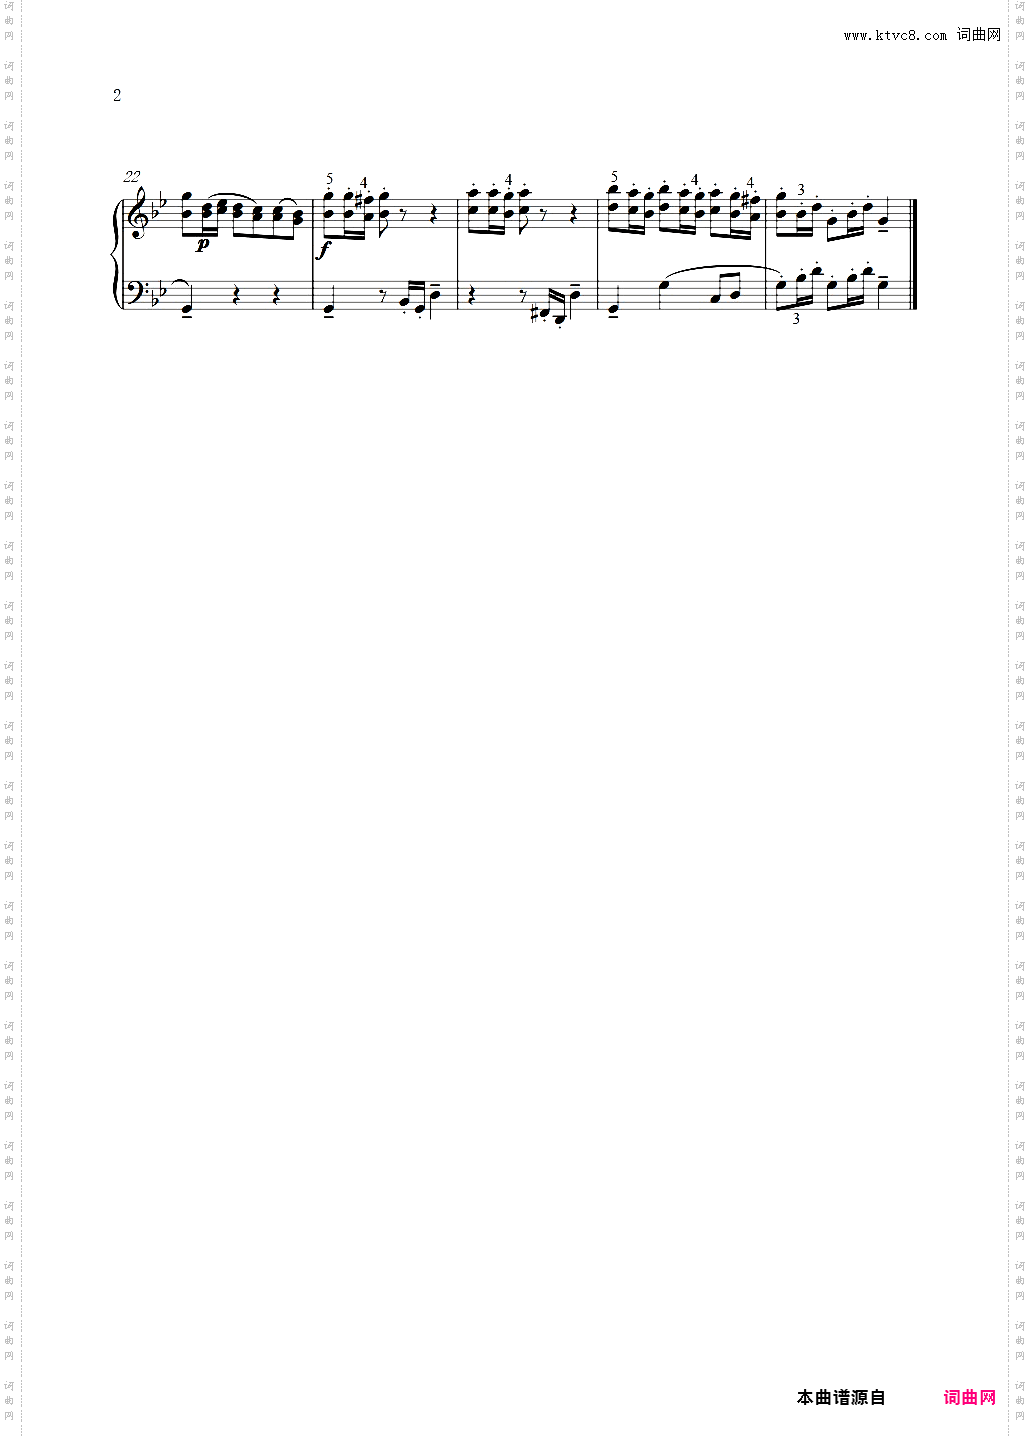 www.ktvc8.com 词曲网
2
22
5 4 4 5 4 4 3
p f
3
本曲谱源自 词曲网